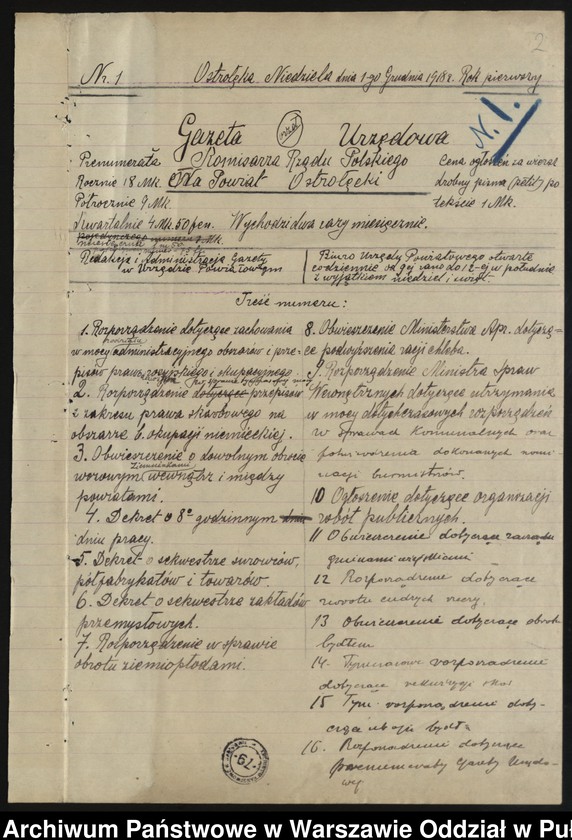 2
Nr. 1 Ostrołęka Niedziela dnia 1-go Grudnia 1918 r. Rok pierwszy
N. 1.
Gazeta Urzędowa
Komisarza Rządu Polskiego
Na Powiat Ostrołęcki
Prenumerata
Rocznie 18 Mk.
Półrocznie 9 Mk.
Kwartalnie 4 Mk. 50 fen. Wychodzi dwa razy miesięcznie.
Cena ogłoszeń za wiersz
drobny pisma (petit) po
tekście 1 Mk.
Redakcja i Administracja Gazety
w Urzędzie Powiatowym
Biuro Urzędu Powiatowego otwarte
codziennie od 9ej rano do 12-ej w południe
z wyjątkiem niedziel i świąt.
Treść numeru:
1. Rozporządzenie dotyczące zachowania
w mocy administracyjnego obszarów i prze-
pisów prawa rosyjskiego i okupacyjnego.
2. Rozporządzenie dotyczące przepisów
z zakresu prawa skarbowego na
obszarze b. okupacji niemieckiej.
3. Obwieszczenie o dowolnym obrocie
ziemniakami
worowym wewnątrz i między
powiatami.
4. Dekret o 8o godzinnym
dniu pracy.
5. Dekret o sekwestrze surowców,
półfabrykatów i towarów.
6. Dekret o sekwestrze zakładów
przemysłowych.
7. Rozporządzenie w sprawie
obrotu ziemiopłodami.
8. Obwieszczenie Ministerstwa Apr. dotyczą-
ce podwyższenia racji chleba.
9. Rozporządzenie Ministra Spraw
Wewnętrznych dotyczące utrzymania
w mocy dotychczasowych rozporządzeń
w sprawach komunalnych oraz
potwierdzenia dokonanych nomi-
nacji burmistrzów.
10 Ogłoszenie dotyczące organizacji
robót publicznych.
11 Obwieszczenie dotyczące zarządu
gminami wiejskiemi
12 Rozporządzenie dotyczące
zwrotu cudzych rzeczy.
13 Obwieszczenie dotyczące obrotu
bydłem
14. Tymczasowe rozporządzenie
dotyczące rekwizycji
15 Tym. rozporządzenie doty-
czące uboju bydła
16. Rozporządzenie dotyczące
prenumeraty Gazety Urzędo-
wej
79
Archiwum Państwowe w Warszawie Oddział w Pu